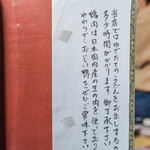 当店ではゆでたてのうどんをお出しするので
多少時間がかかります 御了承下さい
鴨肉は日本国内産の生の肉を使っており
やわらかくおいしい鴨をぜひご賞味下さい